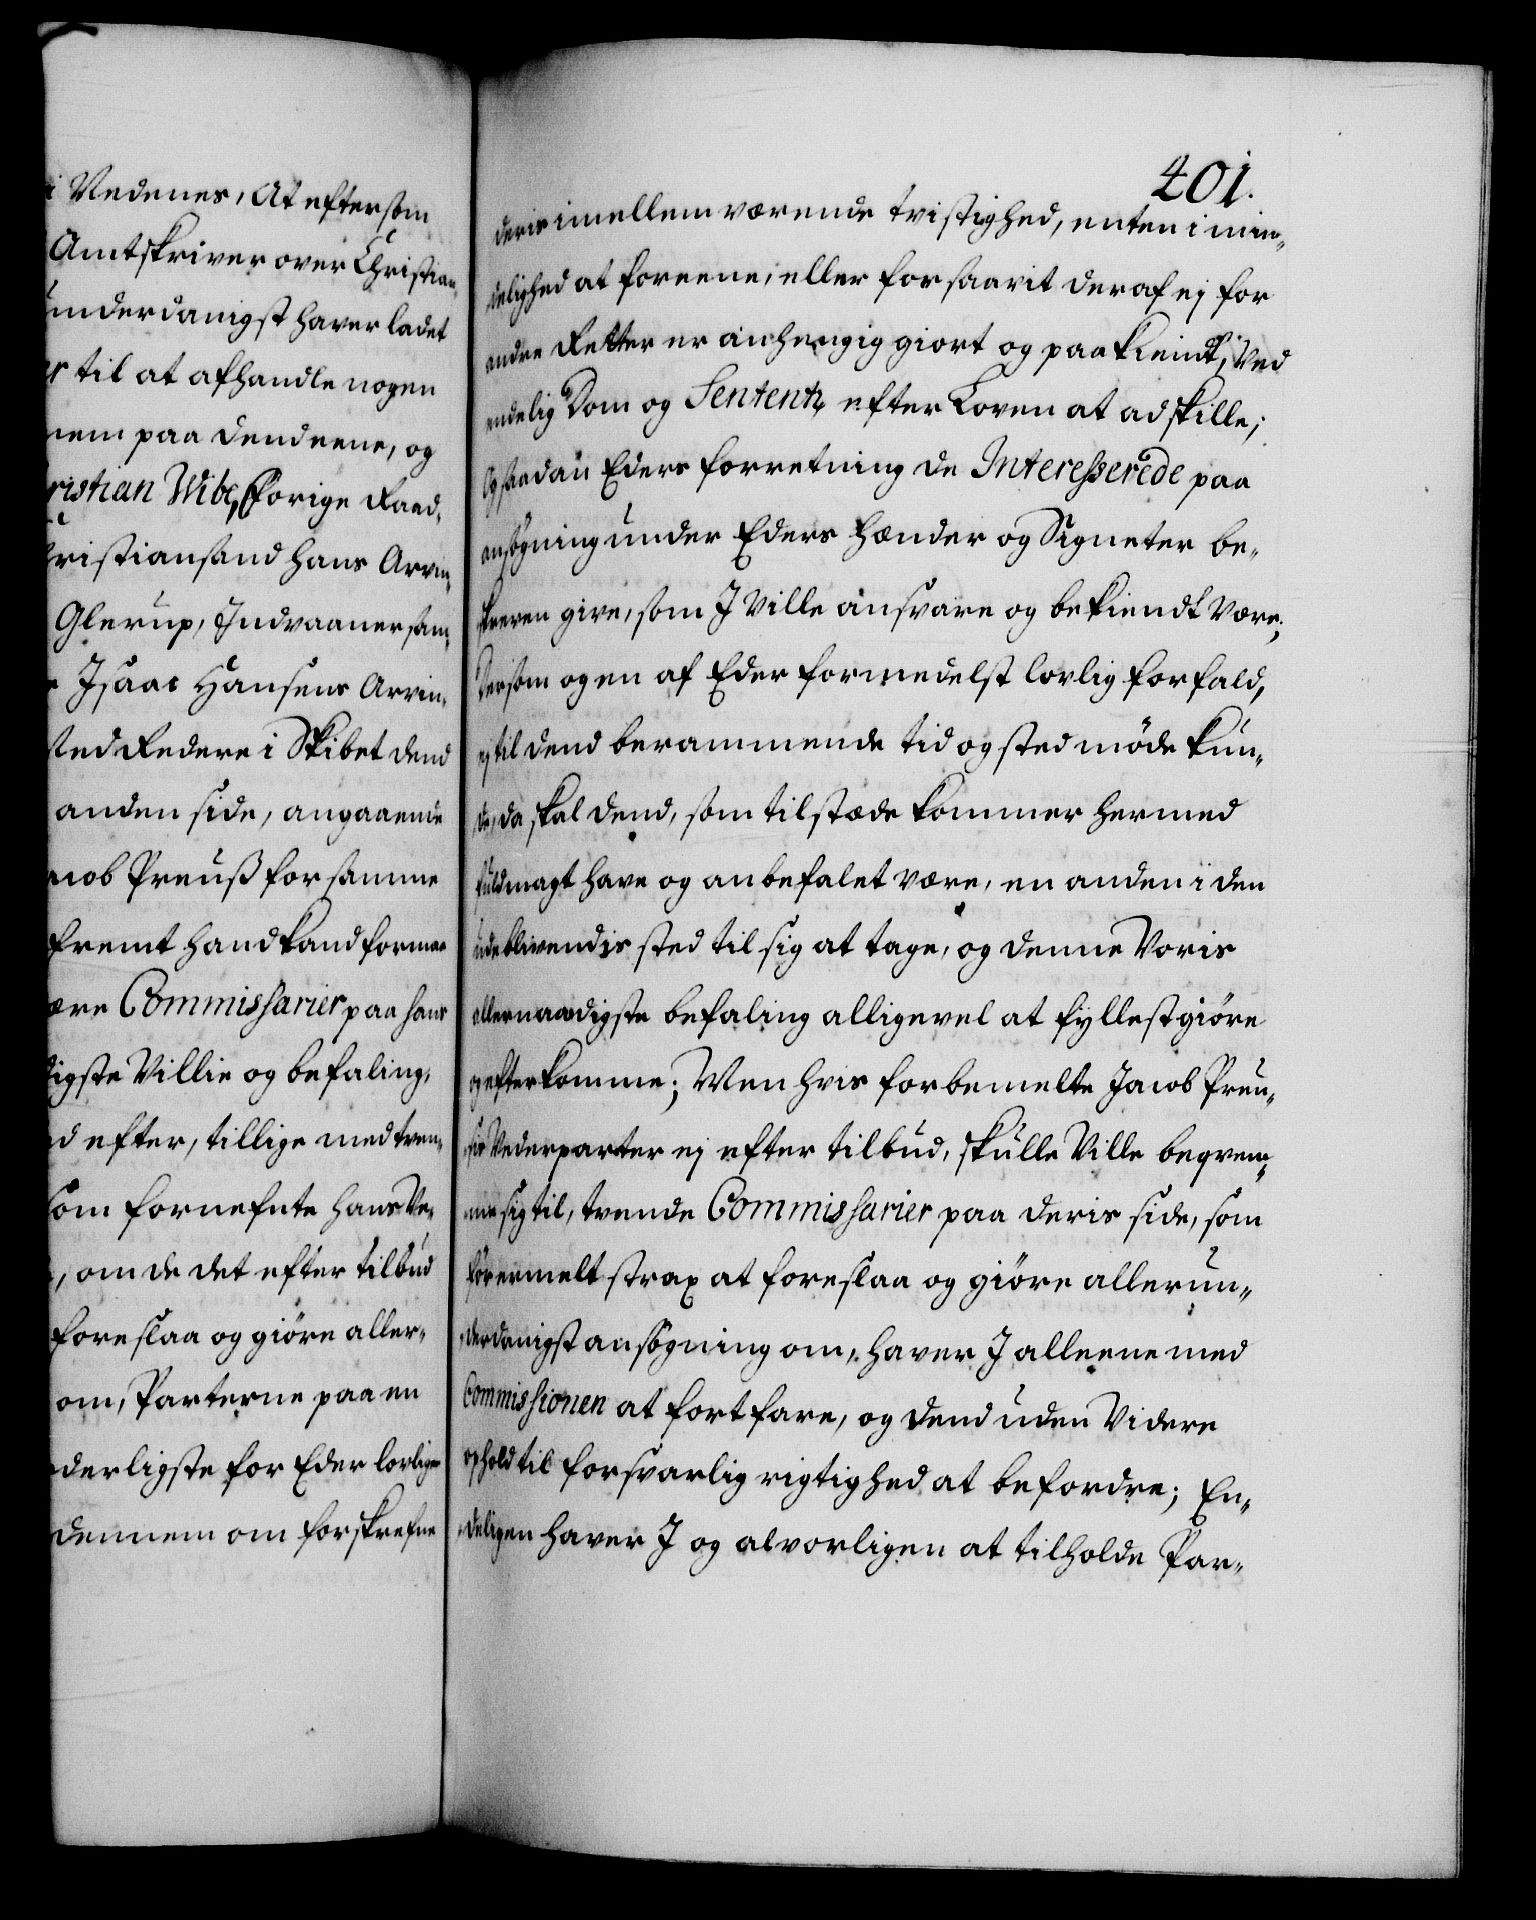 i Nedenes, At eftersom
Amtskriver over Christian-
underdanigst haver ladet
til at afhandle nogen
nem paa dend eene, og
ristian Wibe, forige Raad-
Christiansand Hans Arvin-
Glerup, Indvaaner sam-
Isaac Hansens Arvin-
sted Redere i Skibet dend
anden side, angaaende
acob Preuß for samme
fremt hand kand formaa
være Commissarier paa hans
digste Villie og befaling,
d efter, tillige med tven-
som fornefnte hans Ve-
, om de det efter tilbud
foreslaa og giöre aller-
om, Parterne paa en
derligste for Eder lovlige
dennem om forskrefne
401.
deris imellem værende tvistighed, enten i min-
delighed at foreene, eller for saavit deraf ej for
andre Retter er anhengig giort og paakiendt, ved
endelig Dom og Sententz efter Loven at adskille;
Og saadan Eders forretning de Interesserede paa
ansögning under Eders hænder og Signeter be-
skreven give, som I ville ansvare og bekiendt være;
Dersom og en af Eder formedelst lovlig forfald,
ej til dend berammende tid og sted möde kun-
de, da skal dend, som tilstæde kommer hermed
fuldmagt have og anbefalet være, en anden i den
udeblivendis sted til sig at tage, og denne Voris
allernaadigste befaling alligevel at fyllestgiöre
og efterkomme; Men hvis forbemelte Jacob Preu-
sis Vederparter ej efter tilbud, skulle ville beqvem-
me sig til, tvende Commissarier paa deris side, som
förermelt strax at foreslaa og giöre allerun-
derdanigst ansögning om, haver I alleene med
Commissionen at fortfare, og dend uden videre
ophold til forsvarlig rigtighed at befordre; En-
deligen haver I og alvorligen at tilholde Par-